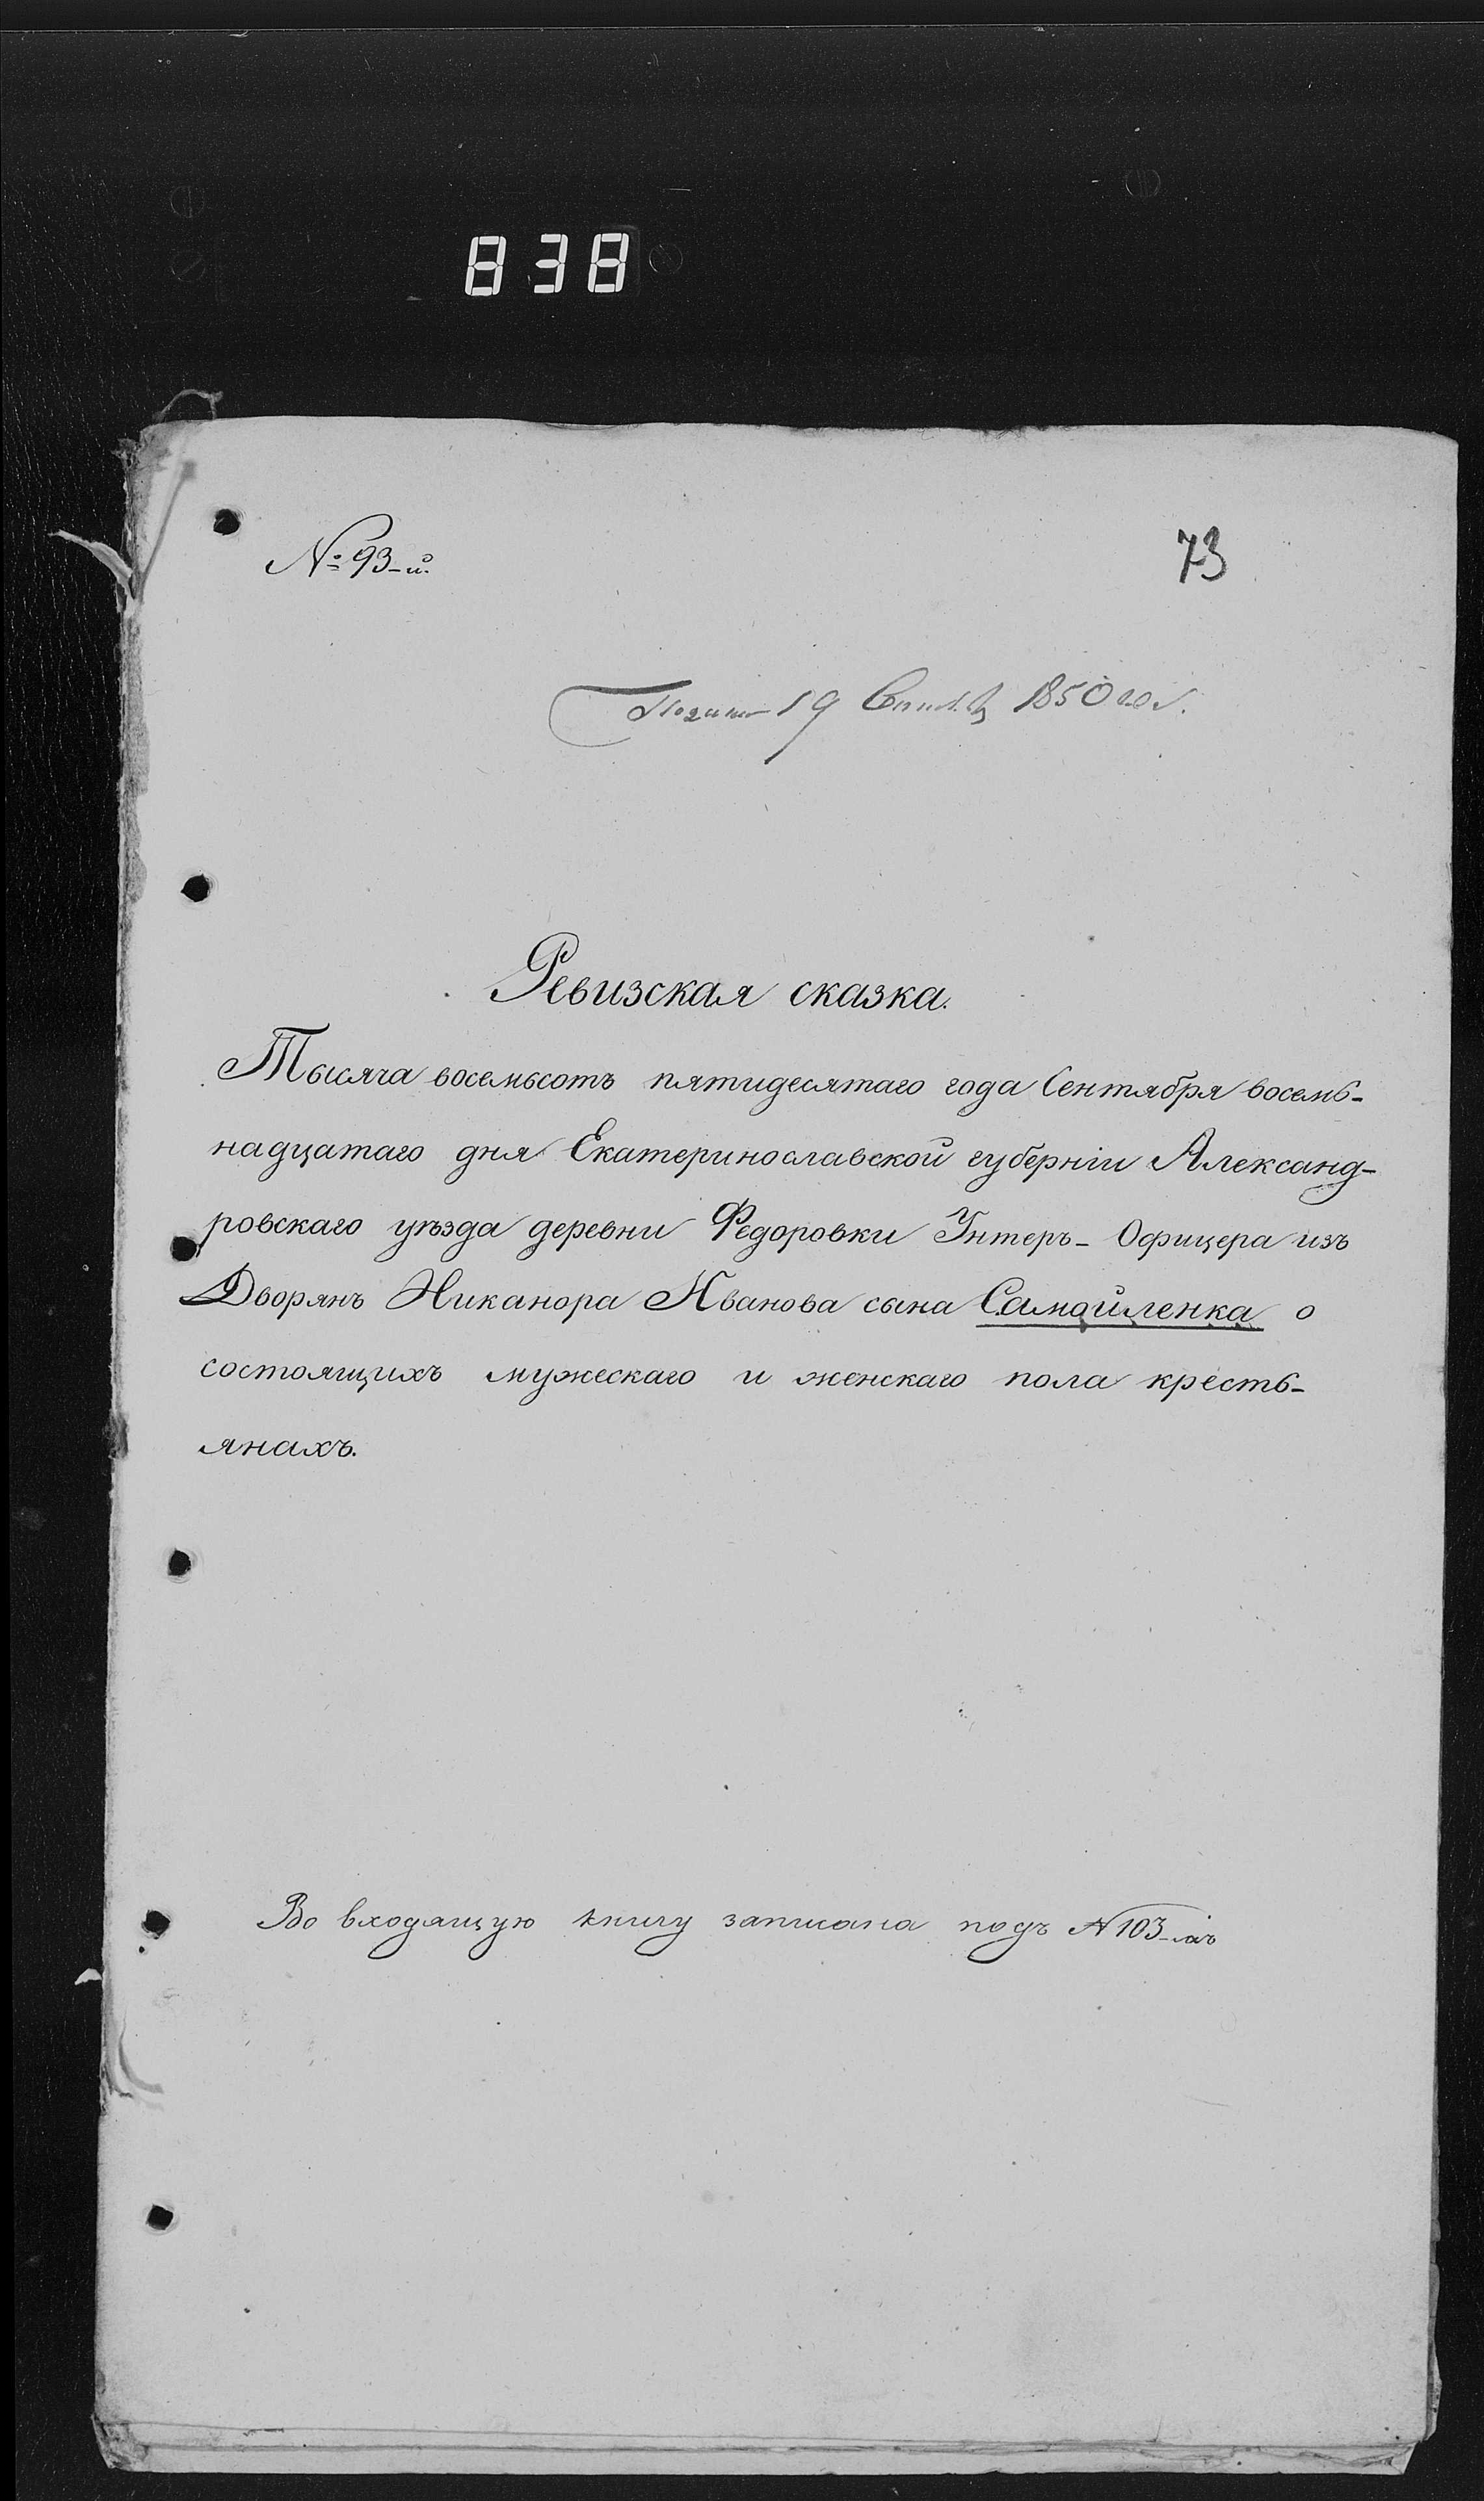 838
№ 93-й.
73
19 1850 год.
Ревизская сказка.
Тысяча восемьсотъ пятидесятаго года Сентября восемь-
надцатаго дня Екатеринославской губерніи Александ-
ровскаго уѣзда деревни Федоровки Унтеръ-Офицера изъ
Дворянъ Никанора Иванова сына Самойленка о
состоящихъ мужескаго и женскаго пола кресть-
янахъ.
Во входящую книгу записана подъ № 103-мъ